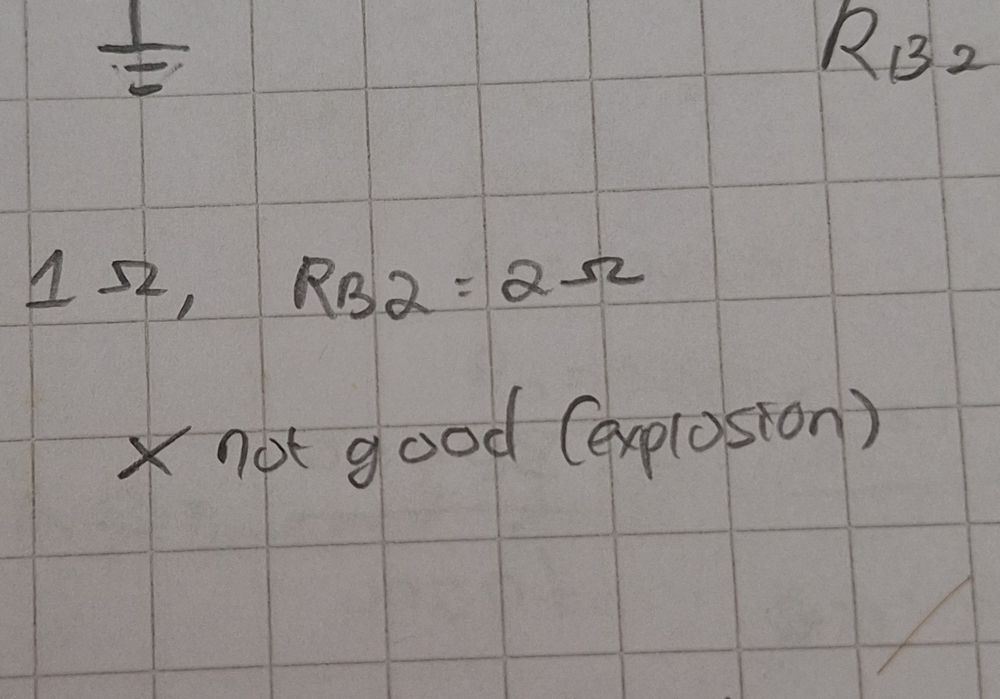 RB2
1 Ω, RB2 = 2 Ω
x not good (explosion)